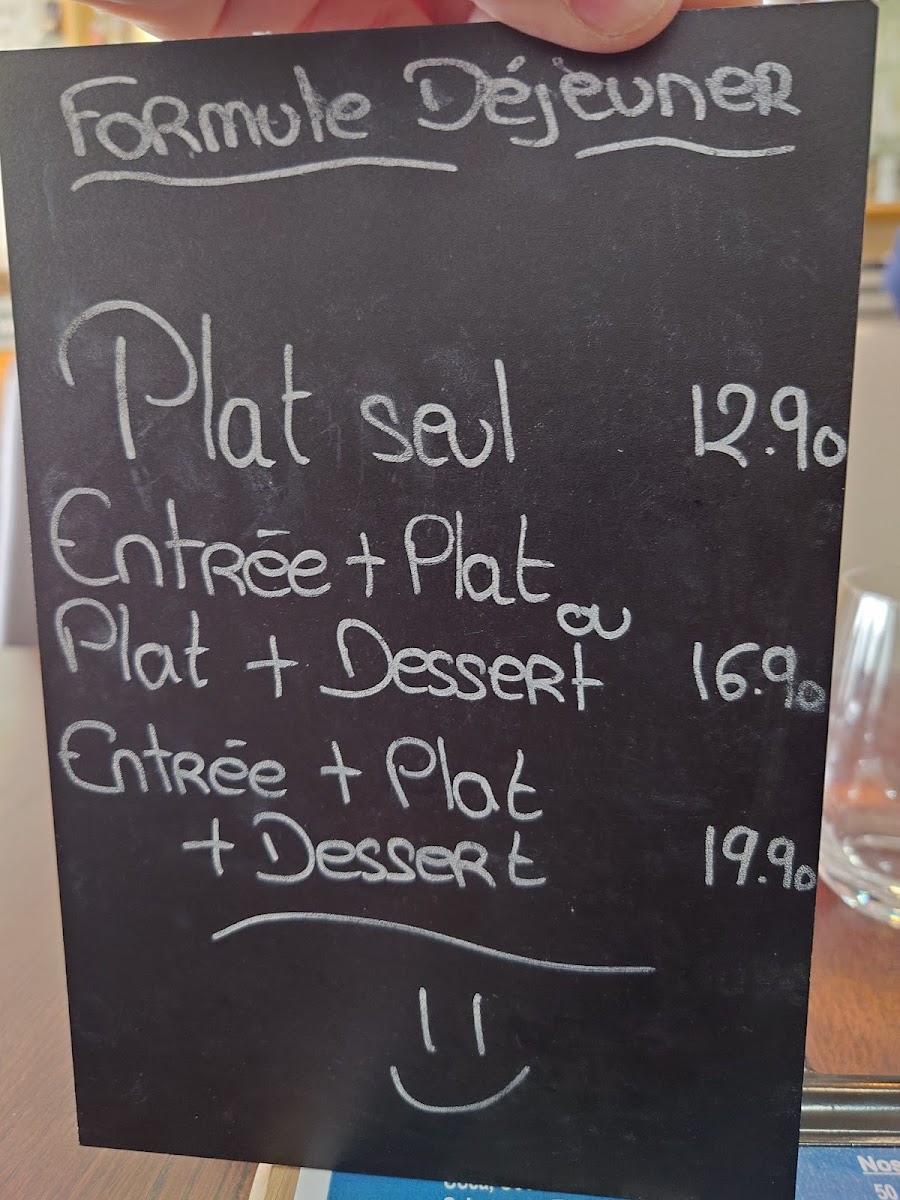 Formule Déjeuner
Plat seul 12.90
Entrée + Plat
ou
Plat + Dessert 16.90
Entrée + Plat
+ Dessert 19.90
Nos
50